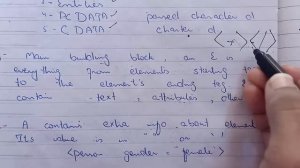 3- Entities
4- PC DATA parsed character d
5- C DATA charter d
1- Main building block, an E is
everything from elements starting to
to the element's ending tag &
contain text, attributes, other
- A contains extra info about element
Its value is in " " or ' '
<person gender = "female"